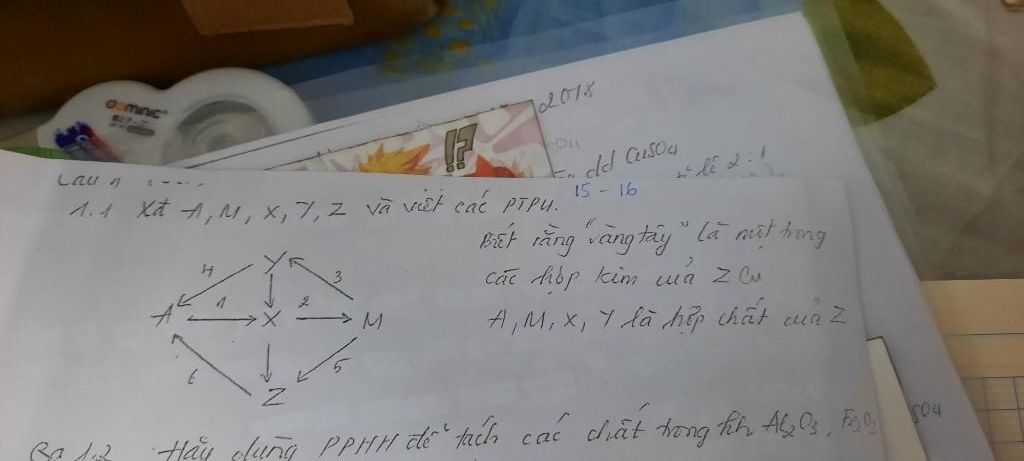 dominic
!?
2018
dd CuSO4
lệ 2:1
1.1 Xđ A, M, X, Y, Z và viết các PTPƯ. 15 - 16
Biết rằng "vàng tây" là một trong
các hợp kim của Z Cu
A, M, X, Y là hợp chất của Z
Y
4 3
A 1 X 2 M
6 5
Z
1.2 Hãy dùng PPHH để tách các chất trong hh Al2O3, Fe2O3
SO4